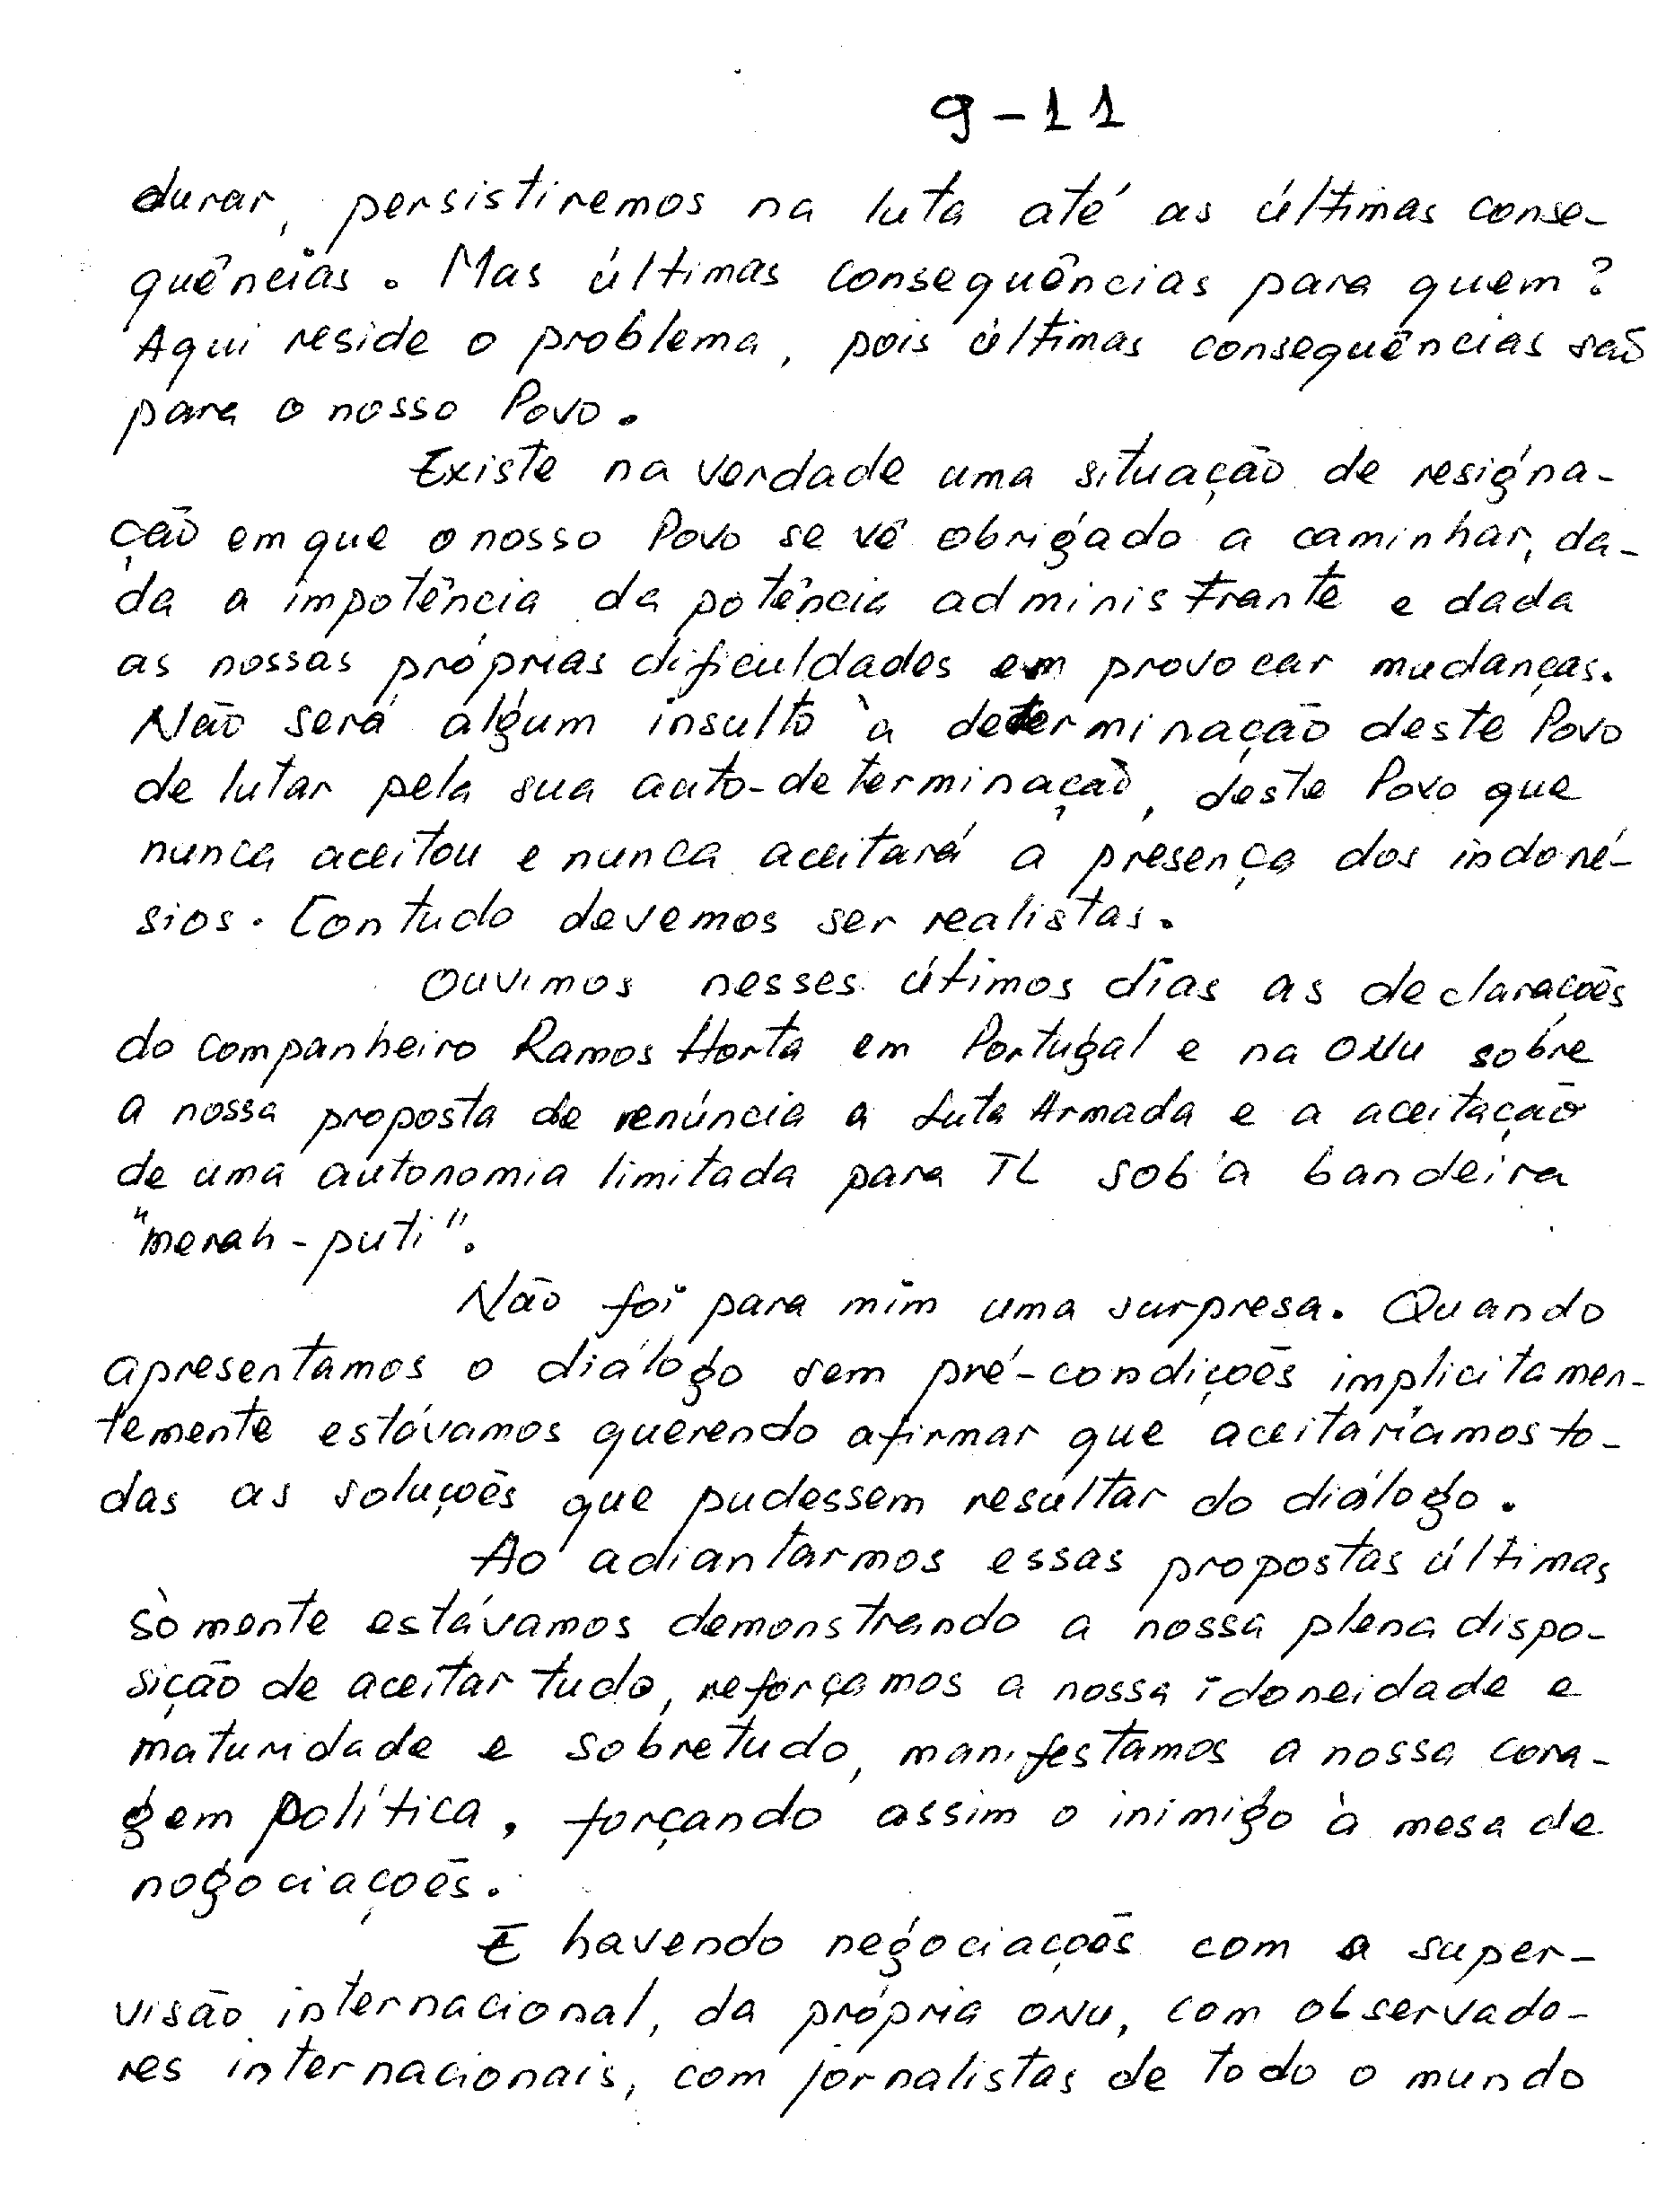 9-11
durar, persistiremos na luta até as últimas conse-
quências. Mas últimas consequências para quem?
Aqui reside o problema, pois últimas consequências são
para o nosso Povo.
Existe na verdade uma situação de resigna-
ção em que o nosso Povo se vê obrigado a caminhar, da-
da a impotência da potência administrante e dada
as nossas próprias dificuldades em provocar mudanças.
Não será algum insulto à determinação deste Povo
de lutar pela sua auto-determinação, deste Povo que
nunca aceitou e nunca aceitará a presença dos indoné-
sios. Contudo devemos ser realistas.
Ouvimos nesses útimos dias as declarações
do companheiro Ramos Horta em Portugal e na ONU sobre
a nossa proposta de renúncia a Luta Armada e a aceitação
de uma autonomia limitada para TL sob a bandeira
"merah-puti".
Não foi para mim uma surpresa. Quando
apresentamos o diálogo sem pré-condições implicitamen-
temente estávamos querendo afirmar que aceitaríamos to-
das as soluções que pudessem resultar do diálogo.
Ao adiantarmos essas propostas últimas
sòmente estávamos demonstrando a nossa plena dispo-
sição de aceitar tudo, reforçamos a nossa idoneidade e
maturidade e sobretudo, manifestamos a nossa cora-
gem política, forçando assim o inimigo à mesa de
nogociações.
E havendo negociações com a super-
visão internacional, da própria ONU, com observado-
res internacionais, com jornalistas de todo o mundo